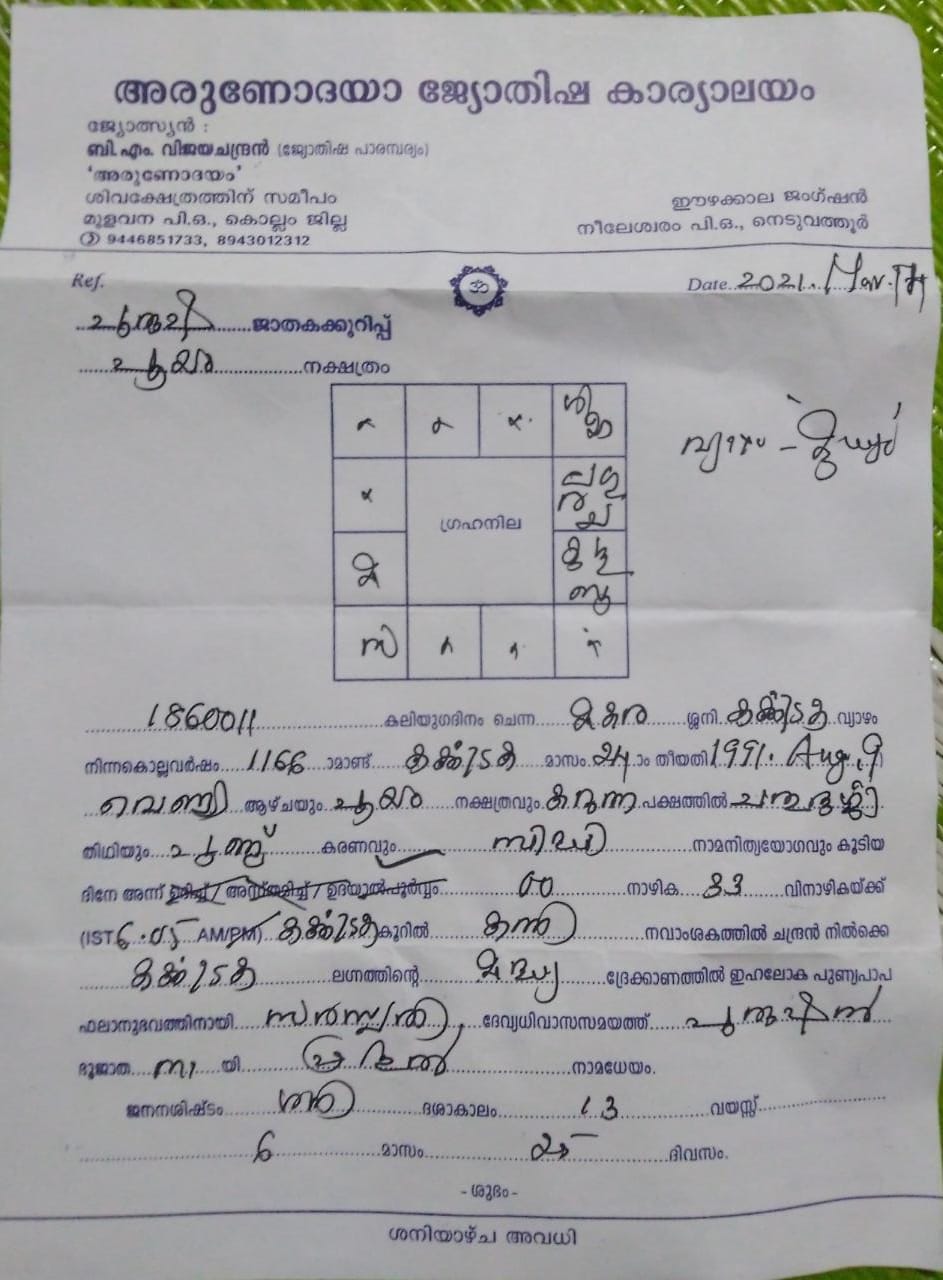 അരുണോദയാ ജ്യോതിഷ കാര്യാലയം
ജ്യോത്സ്യൻ :
ബി.എം. വിജയചന്ദ്രൻ (ജ്യോതിഷ പാരമ്പര്യം)
'അരുണോദയം'
ശിവക്ഷേത്രത്തിന് സമീപം ഈഴക്കാല ജംഗ്ഷൻ
മുളവന പി.ഒ., കൊല്ലം ജില്ല നീലേശ്വരം പി.ഒ., നെടുവത്തൂർ
9446851733, 8943012312
Ref. ॐ Date. 2021. Mar.
ജാതകക്കുറിപ്പ്
പൂയം നക്ഷത്രം
ഗ്രഹനില
1860011 കലിയുഗദിനം ചെന്ന മകര ശ്ശനി കർക്കിടക വ്യാഴം
നിന്നകൊല്ലവർഷം 1166 ാമാണ്ട് കർക്കിടക മാസം 24 ാം തീയതി 1991. Aug. 9
വെള്ളി ആഴ്ചയും പൂയം നക്ഷത്രവും കറുത്ത പക്ഷത്തിൽ ചതുർദ്ദശി
തിഥിയും കരണവും സിദ്ധി നാമനിത്യയോഗവും കൂടിയ
ദിനേ അന്ന് ഉദിച്ച് / അസ്തമിച്ച് / ഉദയാൽപൂർവ്വം 00 നാഴിക 33 വിനാഴികയ്ക്ക്
(IST 6.05 AM/PM) കർക്കിടക കൂറിൽ കന്നി നവാംശകത്തിൽ ചന്ദ്രൻ നിൽക്കെ
കർക്കിടക ലഗ്നത്തിന്റെ മദ്ധ്യ ദ്രേക്കാണത്തിൽ ഇഹലോക പുണ്യപാപ
ഫലാനുഭവത്തിനായി ദേവ്യധിവാസസമയത്ത്
ഭൂജാത നാ യി നാമധേയം.
ജനനശിഷ്ടം ശനി ദശാകാലം 13 വയസ്സ്
6 മാസം 25 ദിവസം.
- ശുഭം -
ശനിയാഴ്ച അവധി